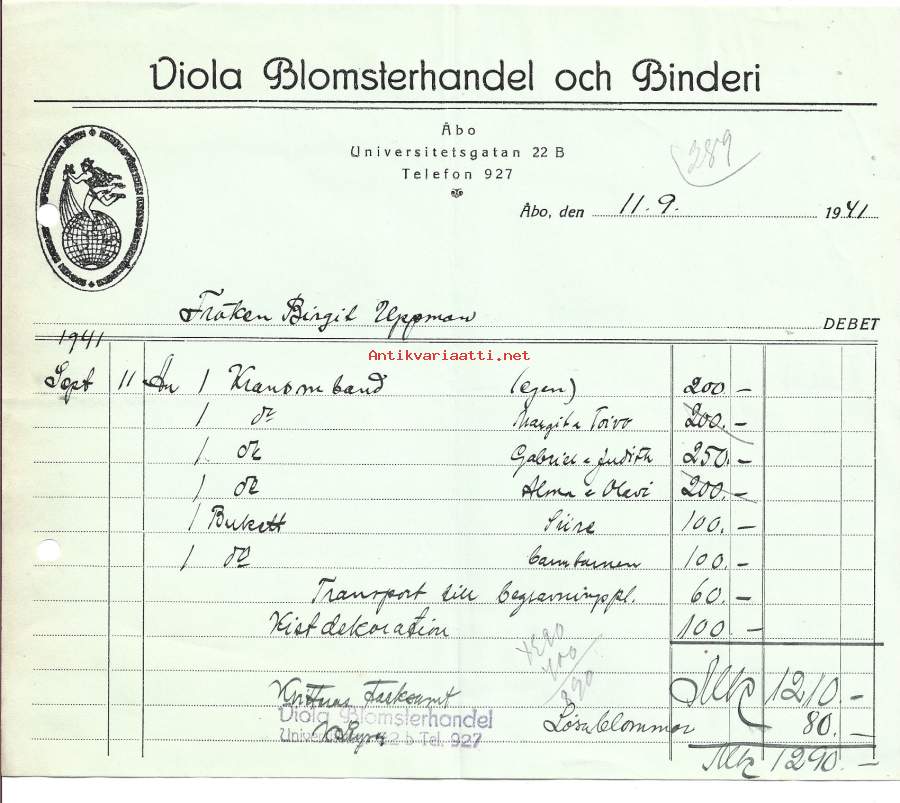 Viola Blomsterhandel och Binderi
Åbo
Universitetsgatan 22 B
Telefon 927
289
Åbo, den 11.9. 1941
Fröken Birgit Uppman
DEBET
1941
Antikvariaatti.net
Sept 11 An 1 Krans m band (egen) 200 –
1 do Margit o Toivo 200. –
1 do Gabriel o Judith 250. –
1 do Alma o Olavi 200. –
1 Bukett Siire 100. –
1 do barnbarnen 100. –
Transport till begravningspl. 60. –
Kistdekoration 100 –
Mk 1210. –
Kvitteras
Viola Blomsterhandel
Lösa blommor 80. –
Tel. 927
Mk 1290. –